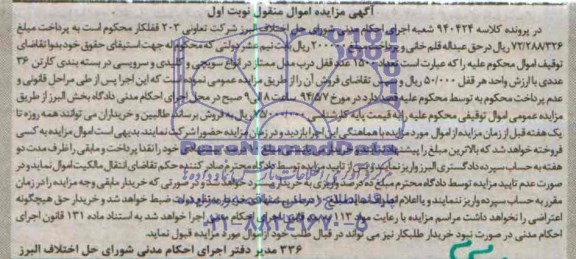 آگهی مزایده اموال منقول نوبت اول
در پرونده کلاسه ۹۴۰۴۲۴ شعبه اجرای احکام مدنی شورای حل اختلاف البرز شرکت تعاونی ۲۰۳ قفلکار محکوم است به پرداخت مبلغ
۷۲/۲۸۸/۳۲۶ ریال در حق عبداله قلم خانی و پرداخت مبلغ ۲۰۰۰ ریال بابت نیم عشر دولتی که محکوم له جهت استیفای حقوق خود بدوا تقاضای
توقیف اموال محکوم علیه را که عبارت است تعداد ۱۵۰۰ عدد قفل درب مدل ممتاز در انواع سویچی و کلیدی و سرویسی در بسته بندی کارتن ۳۶
عددی با ارزش واحد هر قفل ۵۰/۰۰۰ ریال و تقاضای فروش آن را از طریق مزایده عمومی نموده است که این اجرا پس از طی مراحل قانونی و
عدم پرداخت محکوم به توسط محکوم علیه قصد دارد در مورخ ساعت ۸ الی ۹ صبح در محل اجرای احکام مدنی دادگاه بخش البرز از طریق
مزایده عمومی اموال توقیفی محکوم علیه را به قیمت پایه کارشناسی ریال به فروش برساند طالبین و خریداران می توانند همه روزه تا
یک هفته قبل از زمان مزایده از اموال مورد مزایده با هماهنگی این اجرا بازدید و در زمان مزایده حضور شرکت نمایند بدیهی است اموال مزایده به کسی
فروخته خواهد شد که بالاترین مبلغ را پیشنهاد خود را نقدا پرداخت و مابقی را ظرف مدت دو
هفته به حساب سپرده دادگستری البرز واریز نماید تا پس از تایید مزایده توسط دادگاه محترم صادر کننده حکم تقاضای انتقال مالکیت اموال نماید و در
صورت عدم تایید مزایده توسط دادگاه محترم مبلغ ده درصد واریزی به خریدار مسترد خواهد شد و در صورتی که خریدار مابقی وجه مزایده را در زمان
مقرر به حساب سپرده واریز ننمایند و یا اعلام انصراف ضبط خواهد شد و خریدار حق هیچگونه
اعتراضی را نخواهد داشت مراسم مزایده با رعایت مواد ۱۱۳ احکام مدنی اجرا خواهد شد به استناد ماده ۱۳۱ قانون اجرای
احکام مدنی در صورت نبود خریدار طلبکار نیز می تواند در قبال طلب خود از اموال مورد مزایده قبول نماید.
۳۳۶ مدیر دفتر اجرای احکام مدنی شورای حل اختلاف البرز
ParsNamadData
۰۲۱-۸۸۳۴۹۶۷۰-۵